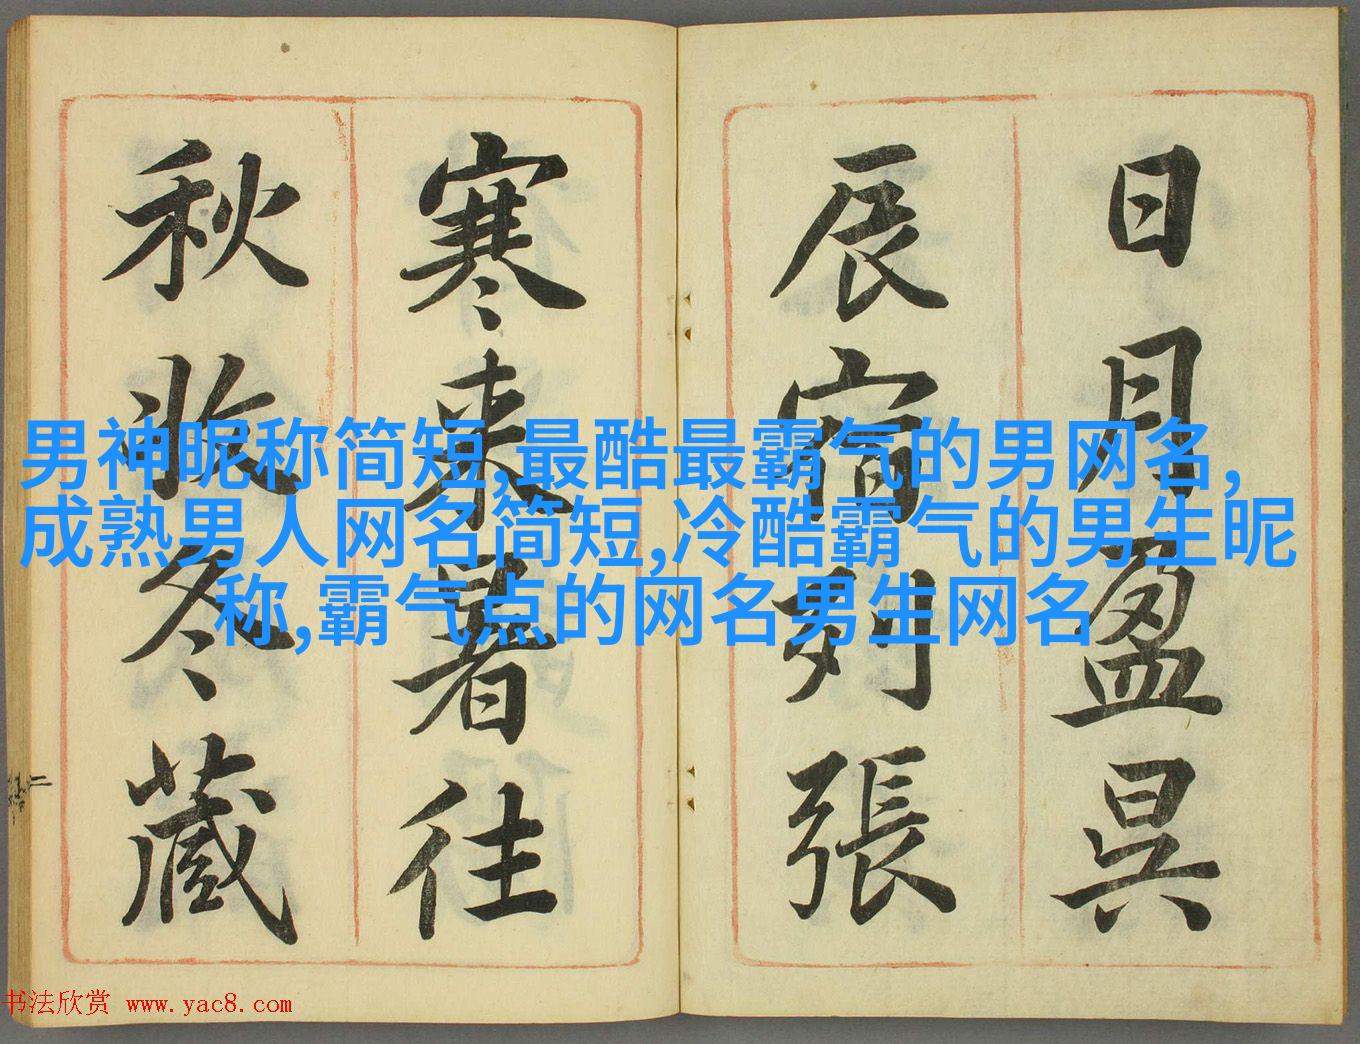 日月盈昃
辰宿列張
寒来暑往
秋收冬蔵
男神昵称简短,最酷最霸气的男网名,
成熟男人网名简短,冷酷霸气的男生昵
称,霸气点的网名男生网名
二
书法欣赏 www.yac8.com